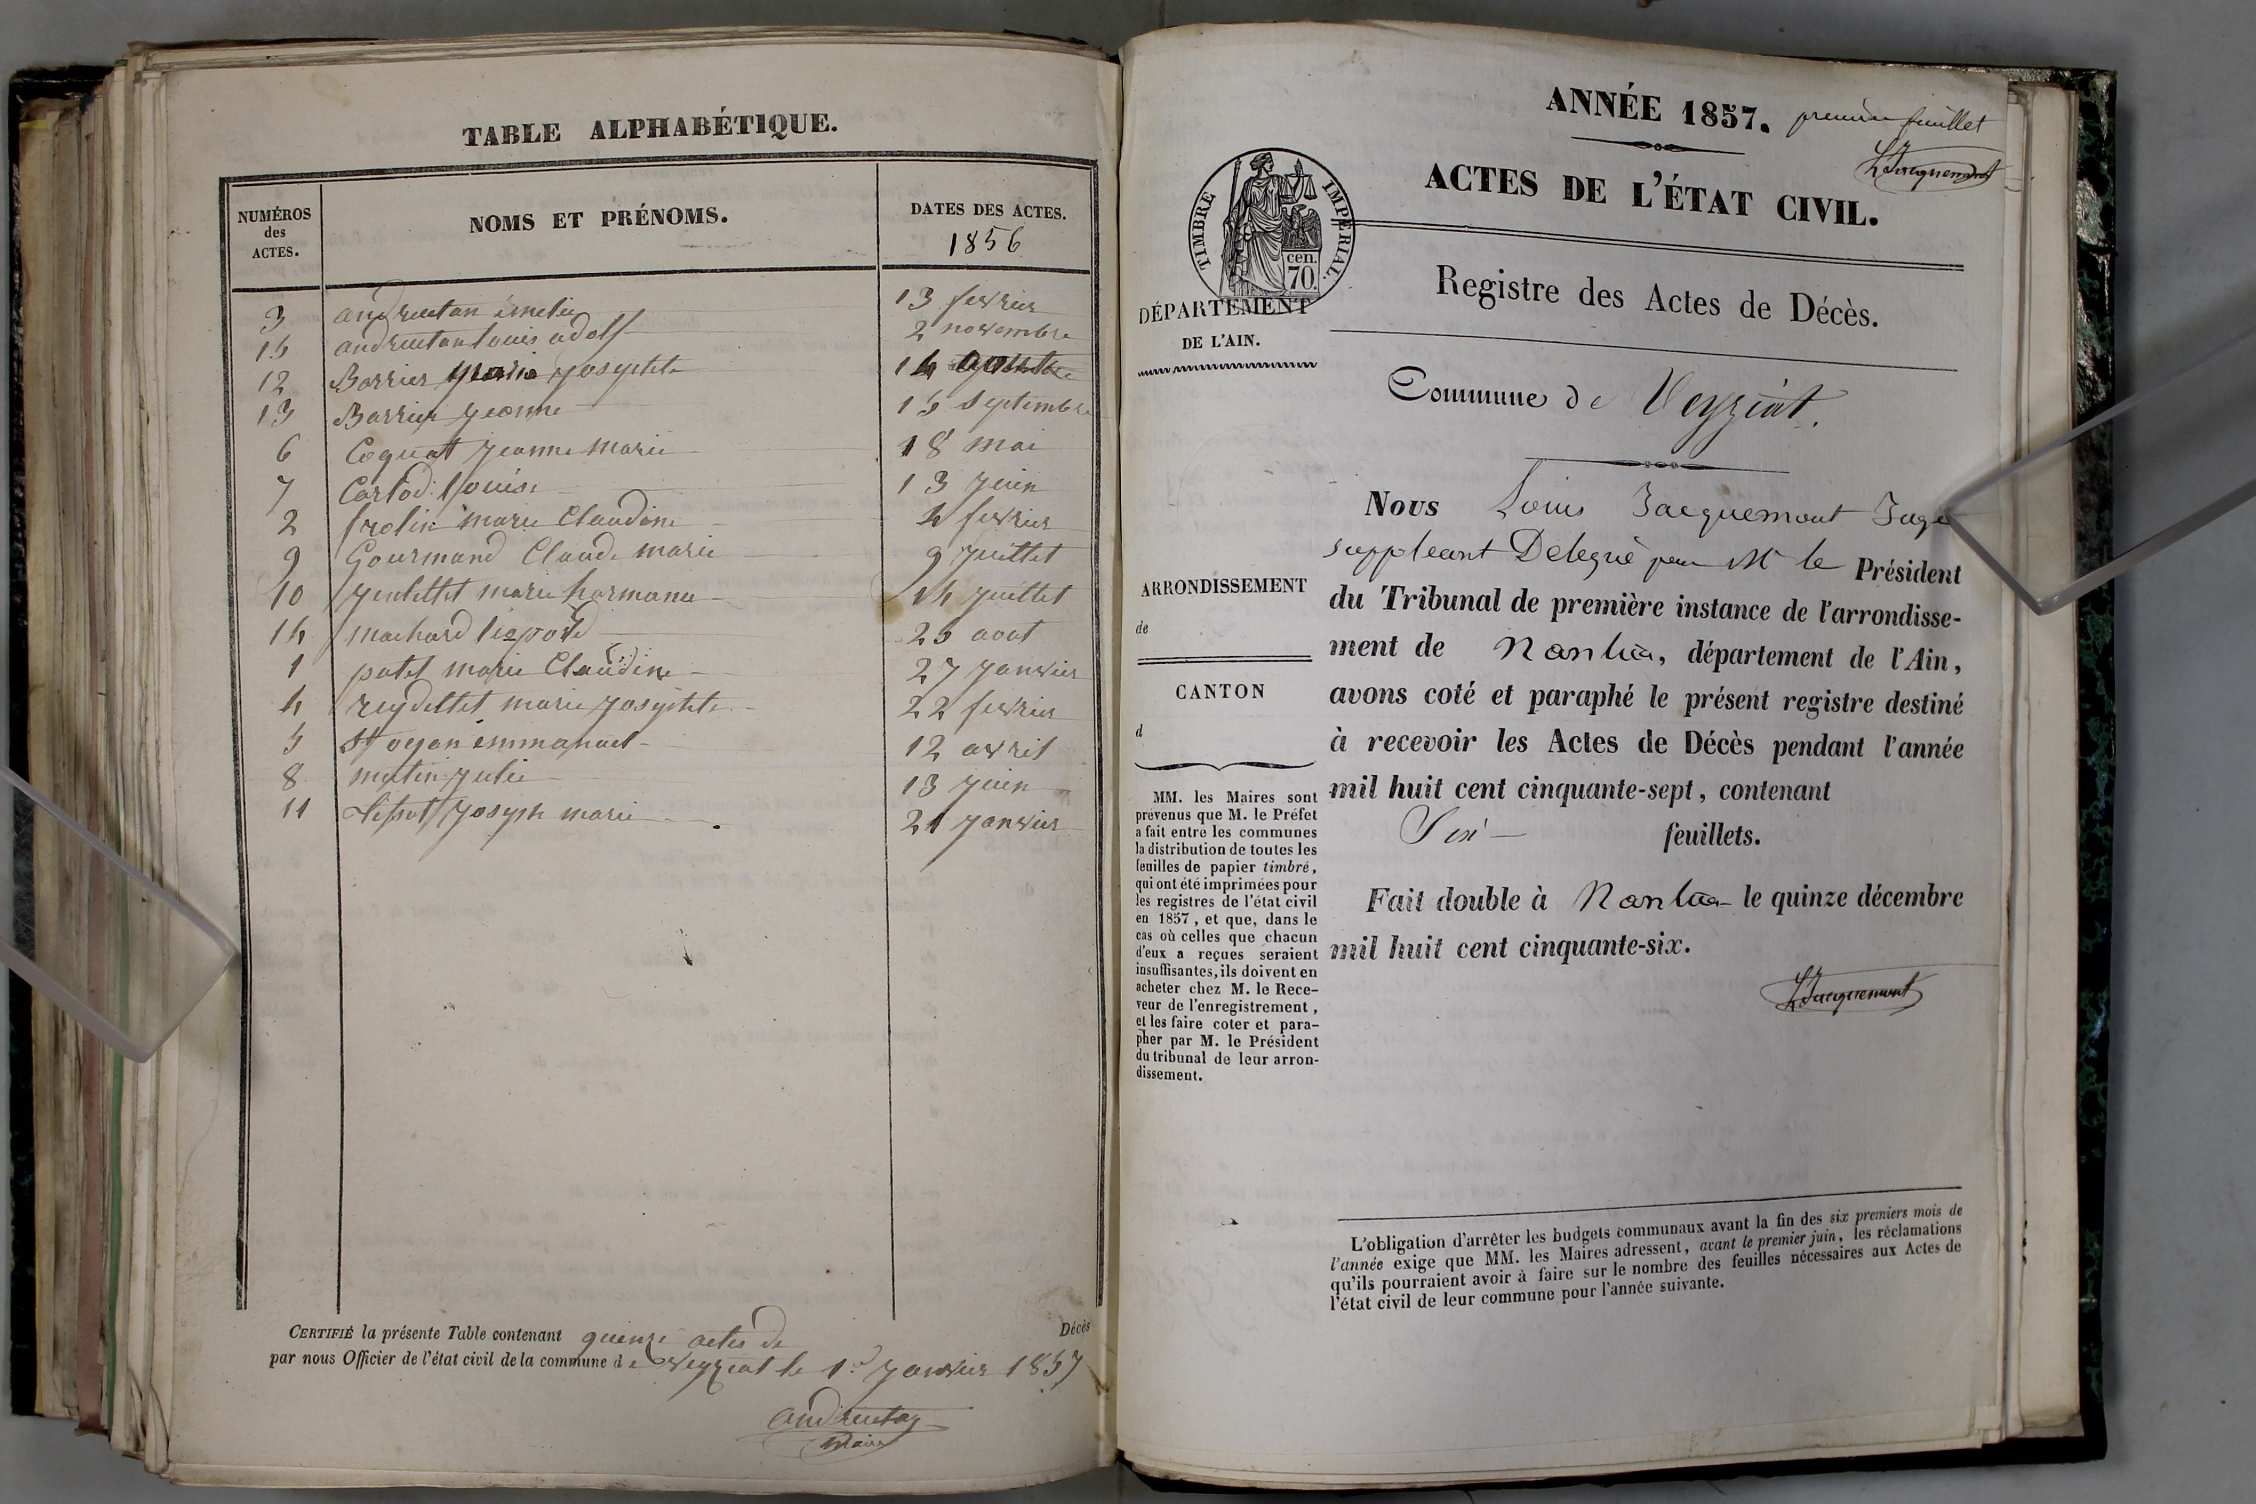 TABLE ALPHABÉTIQUE.
NUMÉROS des ACTES.
NOMS ET PRÉNOMS.
DATES DES ACTES.
1856
3 andruetan émelie 13 fevrier
15 andruetan louis adolf 2 novembre
12 Barrier marie josephte 14
13 Barrier jeanne 15 septembre
6 Coquat jeanne marie 18 mai
7 Carlod louise 13 juin
2 frolin marie Claudine 4 fevrier
9 Gourmand Claude marie 9 juillet
10 marie 14 juillet
14 machard 25 aout
1 patel marie Claudine 27 janvier
4 reydellet marie josephte 22 fevrier
5 St oyen émmanuel 12 avril
8 julie 13 juin
11 joseph marie 21 janvier
CERTIFIÉ la présente Table contenant quinze actes de Décès
par nous Officier de l'état civil de la commune de veyziat le 1er janvier 1857
andruetan
maire
ANNÉE 1857. premier feuillet
LJacquemont
ACTES DE L'ÉTAT CIVIL.
TIMBRE IMPÉRIAL.
cen.
70.
Registre des Actes de Décès.
DÉPARTEMENT
DE L'AIN.
Commune de Veyziat.
Nous Louis Jacquemont Juge
suppleant Delegué par Mr le Président
du Tribunal de première instance de l'arrondisse-
ment de Nantua, département de l'Ain,
avons coté et paraphé le présent registre destiné
à recevoir les Actes de Décès pendant l'année
mil huit cent cinquante-sept, contenant
Six feuillets.
Fait double à Nantua le quinze décembre
mil huit cent cinquante-six.
LJacquemont
ARRONDISSEMENT
de
CANTON
d
MM. les Maires sont
prévenus que M. le Préfet
a fait entre les communes
la distribution de toutes les
feuilles de papier timbré,
qui ont été imprimées pour
les registres de l'état civil
en 1857, et que, dans le
cas où celles que chacun
d'eux a reçues seraient
insuffisantes, ils doivent en
acheter chez M. le Rece-
veur de l'enregistrement,
et les faire coter et para-
pher par M. le Président
du tribunal de leur arron-
dissement.
L'obligation d'arrêter les budgets communaux avant la fin des six premiers mois de
l'année exige que MM. les Maires adressent, avant le premier juin, les réclamations
qu'ils pourraient avoir à faire sur le nombre des feuilles nécessaires aux Actes de
l'état civil de leur commune pour l'année suivante.